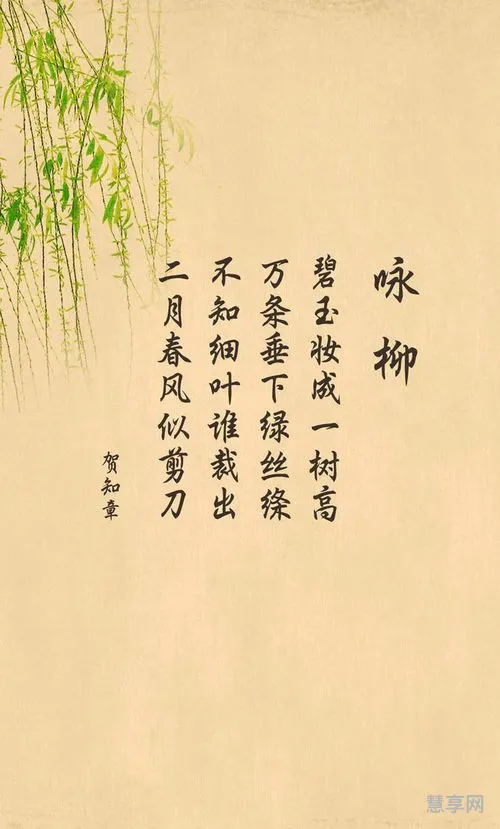 咏柳
碧玉妆成一树高
万条垂下绿丝绦
不知细叶谁裁出
二月春风似剪刀
贺知章
慧享网